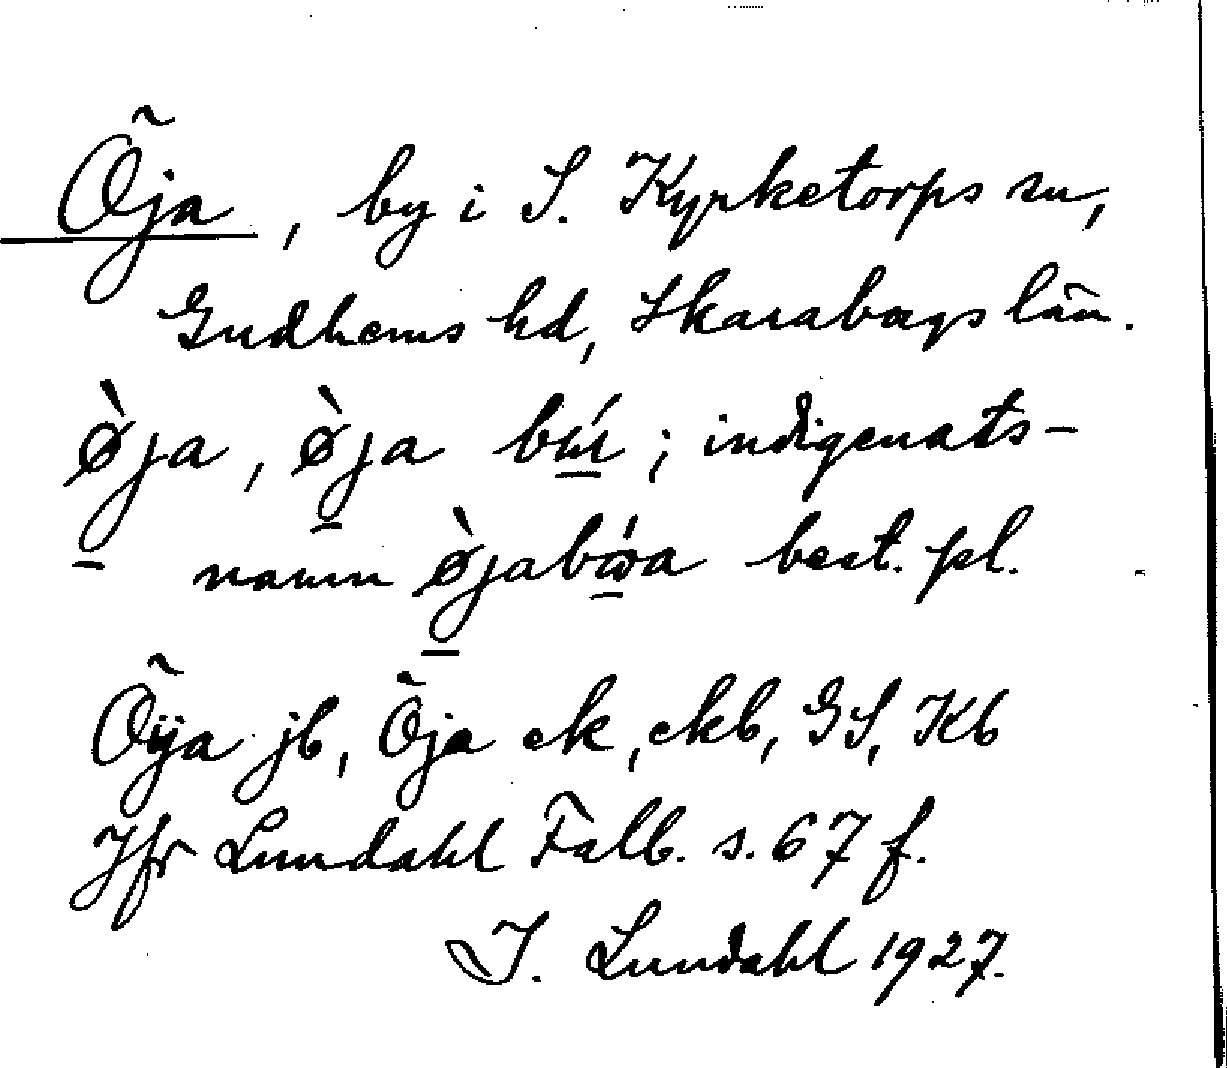 Õja, by i S. Kyrketorps sn,
Gudhems hd, Skaraborgs län.
ø̀ja, ø̀ja bý; indigenats-
namn ø̀jabωa best. pl.
Õÿa jb, Õja ek, ekb, GS, Kb
Jfr Lundahl Falb. s. 67 f.
I. Lundahl 1927.